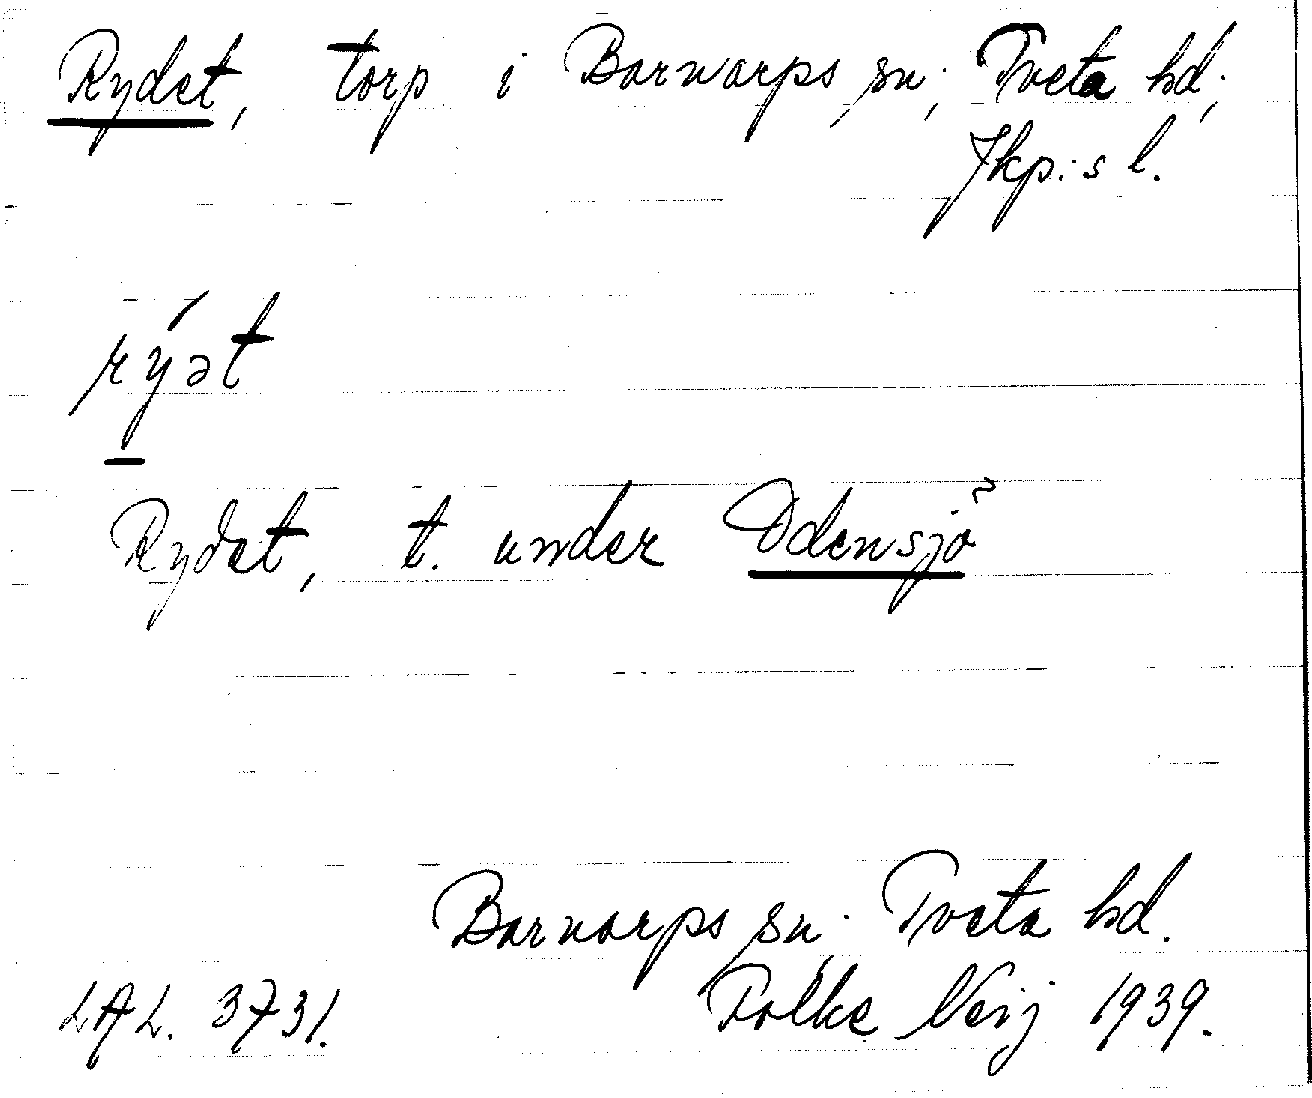 Rydet, torp i Barnarps sn; Tveta hd;
Jkp:s l.
rýət
Rydet, t. under Odensjö
Barnarps sn. Tveta hd.
LAL. 3731. Folke Neij 1939.